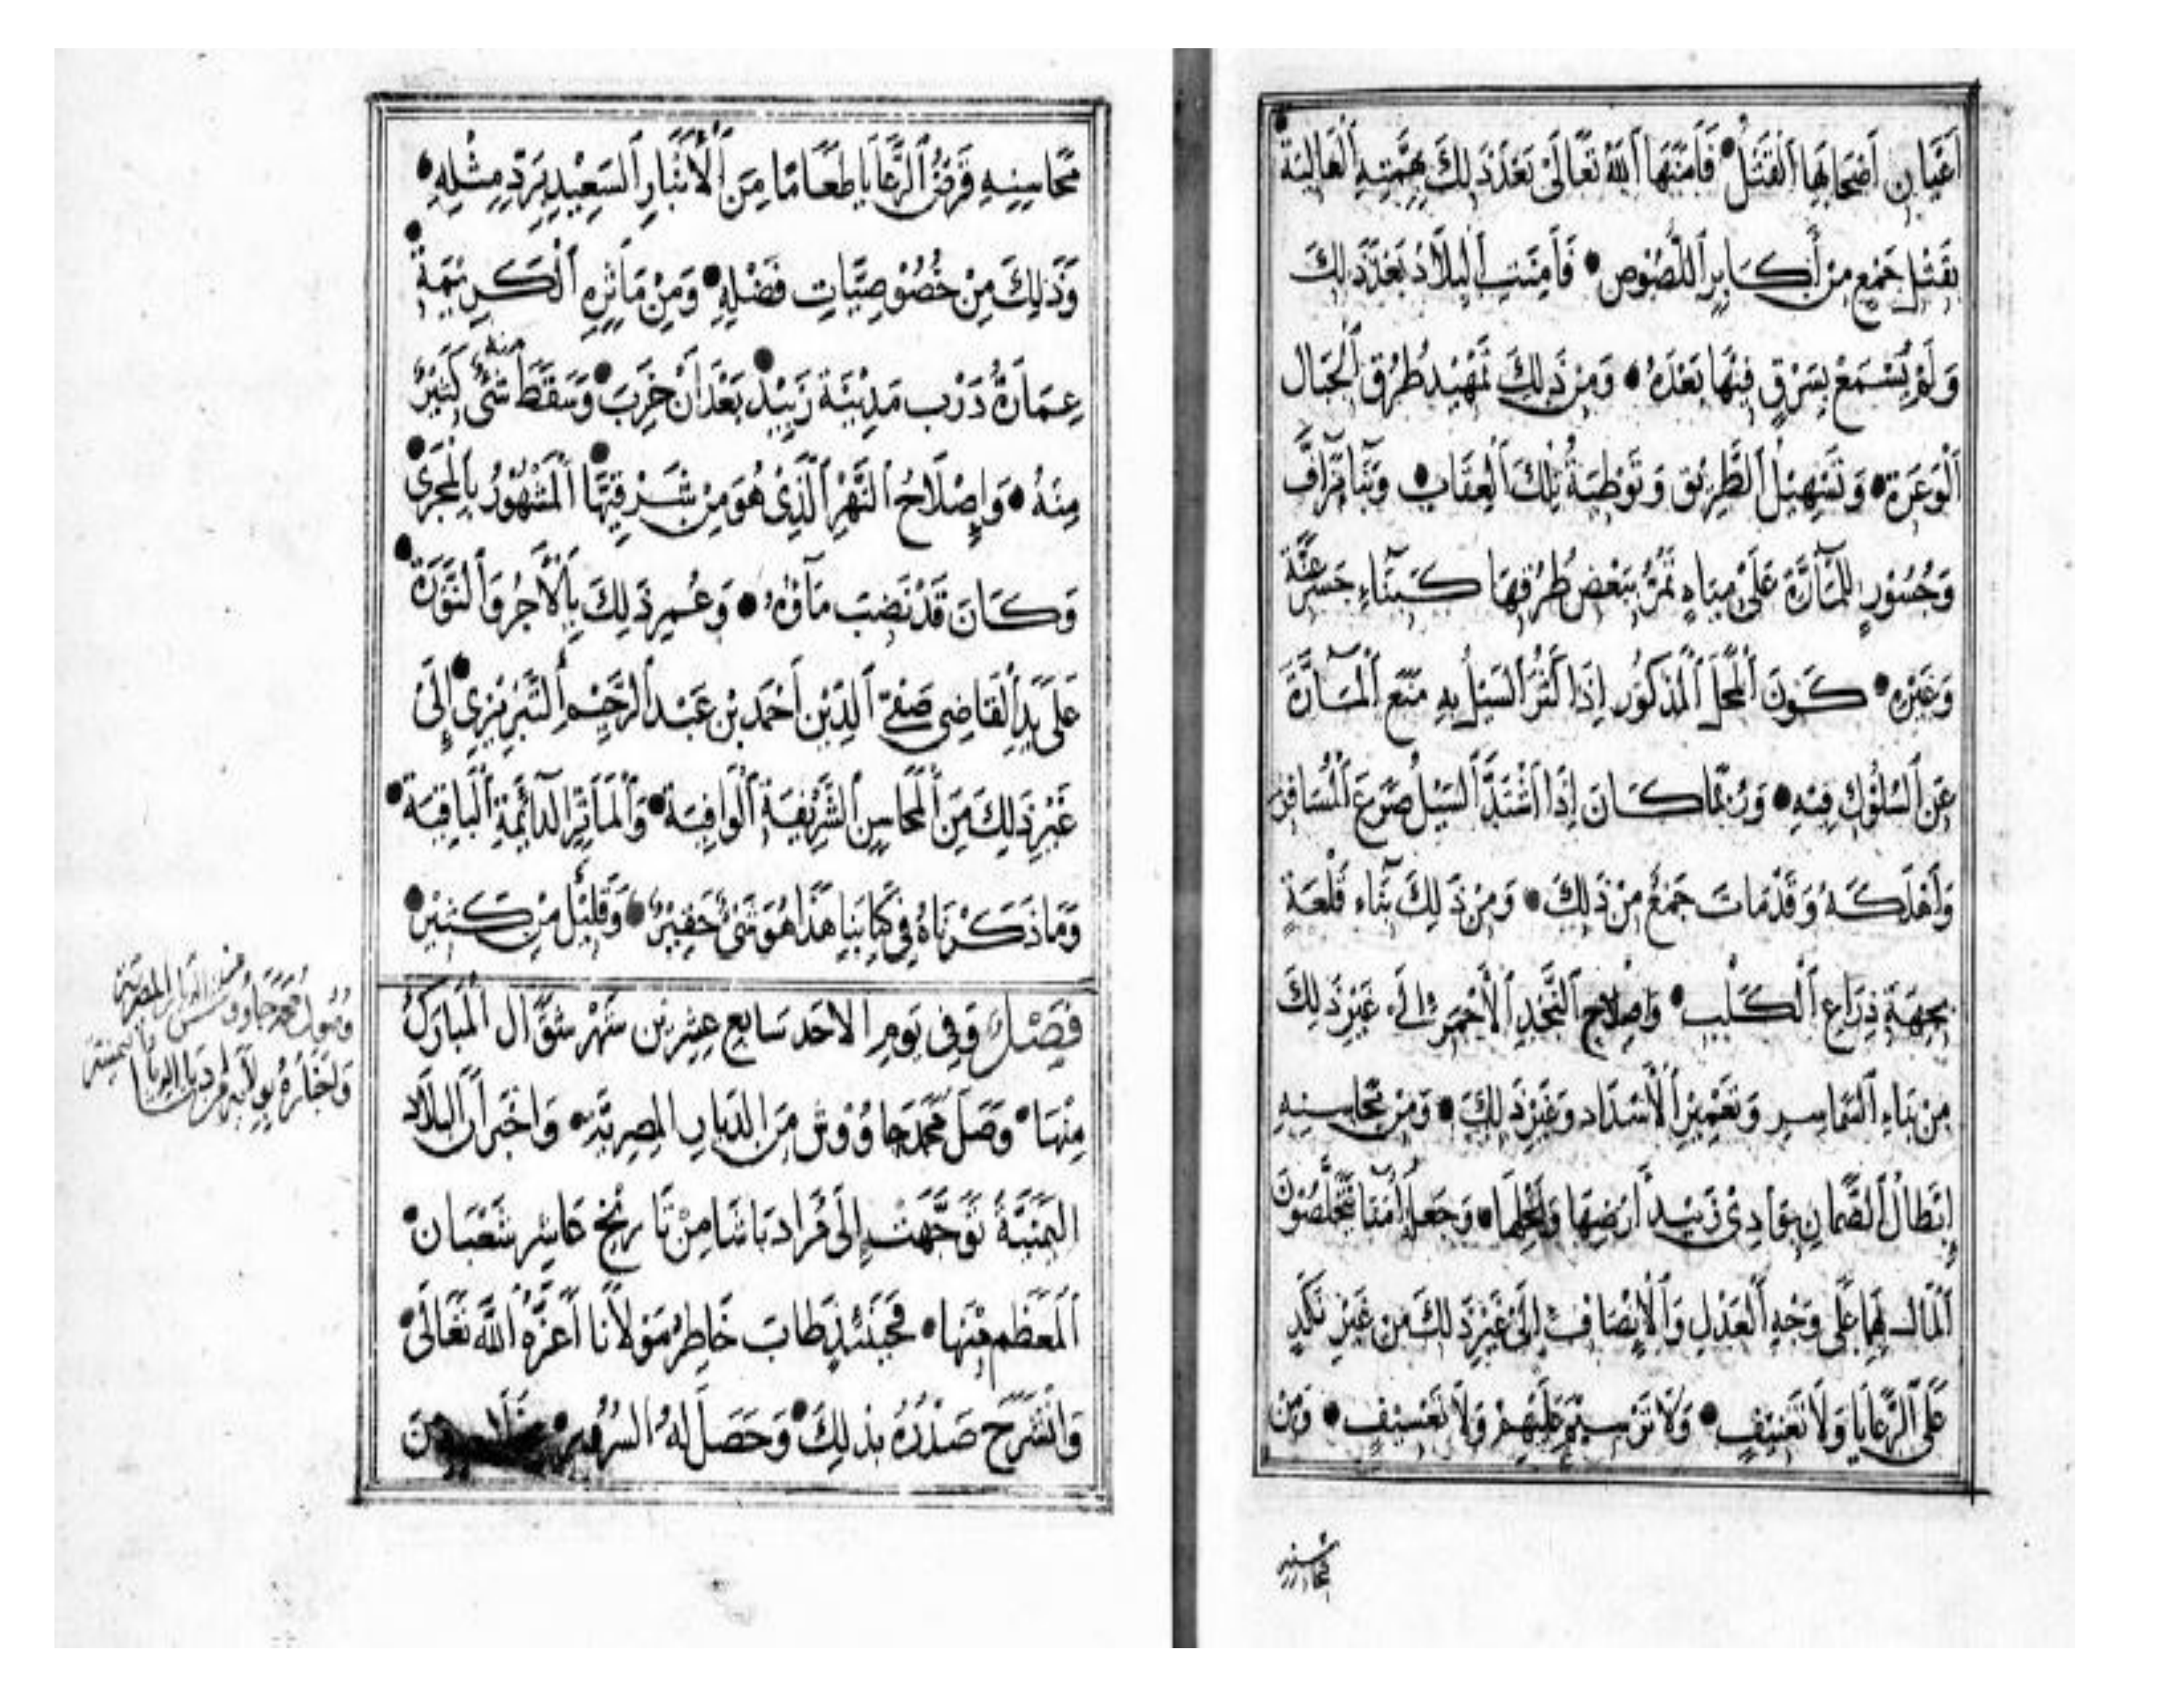 أعيان أصحابها القتل فأمنها الله تعالى بعد ذلك بهمته العالية
بقتل جمع من أكابر اللصوص فأمنت البلاد بعد ذلك
ولم يسمع بسرق فيها بعده ومن ذلك تمهيد طرق الجبال
الوعرة وتسهيل الطريق وتوطية تلك العقاب وبنا مرافّ
وجسور للمآرّة على مياه تمر ببعض طرقها كبناء جسر عنّة
وغيره كون المحل المذكور إذا كثر السيل به منع المآرّة
عن السلوك فيه وربما كان إذا اشتد السيل صرع المسافر
وأهلكه وقد مات جمع من ذلك ومن ذلك بناء قلعة
بجهة ذراع الكلب وإصلاح النجد الأحمر إلى غير ذلك
من بناء السماسر وتعمير الأسداد وغير ذلك ومن محاسنه
إبطال الضمان بوادي زبيد أرضها ونخلها وجعل أمنا يخلصون
المال لهما على وجه العدل والأنصاف إلى غير ذلك من غير نكد
على الرعايا ولا تعنيف ولا ترسيم عليهم ولا تعسيف ومن
محاسنه
محاسنه قرض الرعايا طعاما من الأنبار السعيد يرد مثله
وذلك من خصوصيات فضله ومن مآثره الكريمة
عمارة درب مدينة زبيد بعد أن خرب وسقط منه شئ كثير
منه وإصلاح النهر الذي هو من شرقيها المشهور بالمجرى
وكان قد نضب مآؤه وعمر ذلك بالآجر والنورة
على يد القاضي صفي الدين أحمد بن عبد الرحيم التبريزي إلى
غير ذلك من المحاسن الشريفة الوافية والمآثر الدآئمة الباقية
وما ذكرناه في كتابنا هذا هو شئ حقير وقليل من كثير
فصل وفي يوم الاحد سابع عشرين شهر شوال المبارك
منها وصل محمد جاووش من الديار المصرية وأخبر أن البلاد
اليمنية توجهت إلى مراد باشا من تاريخ عاشر شعبان
المعظم منها فحينئذ طاب خاطر مولانا أعزه الله تعالى
وانشرح صدره بذلك وحصل له السرور من
وصول محمد جاووش من الديار المصرية
وإخباره بولاية مراد باشا الديار اليمنية